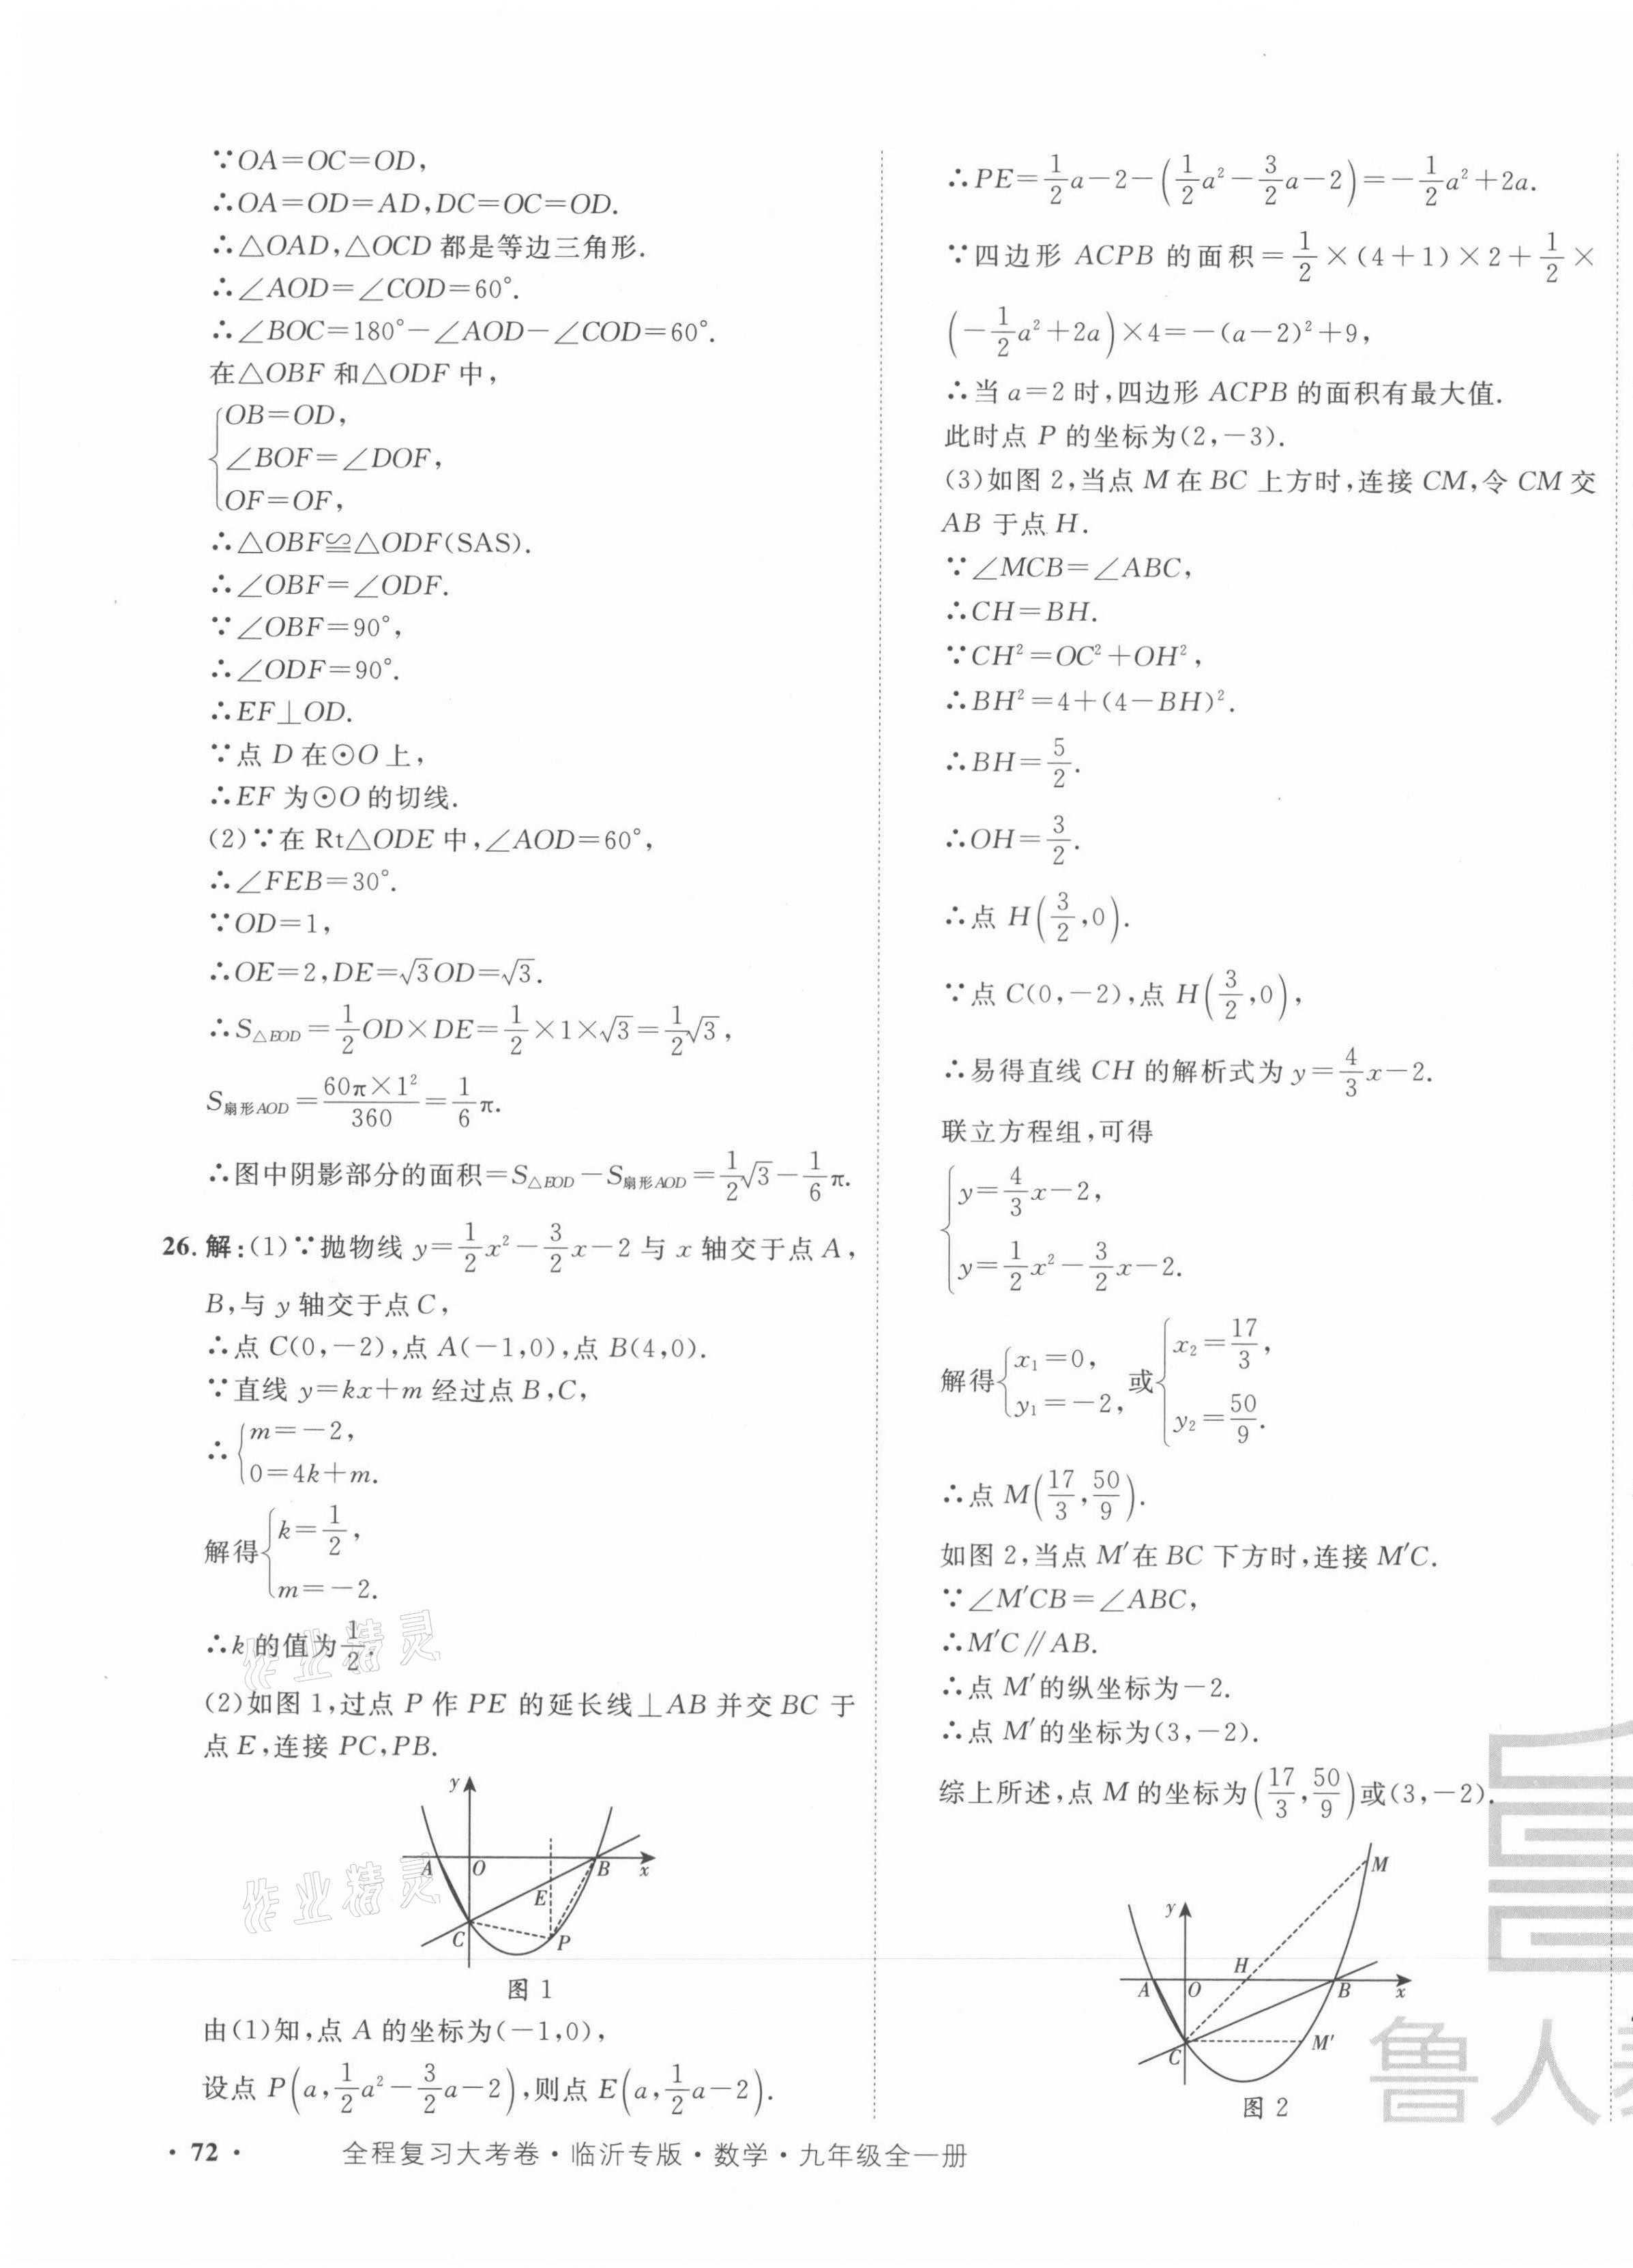 ∵OA=OC=OD,
∴OA=OD=AD,DC=OC=OD.
∴△OAD,△OCD 都是等边三角形.
∴∠AOD=∠COD=60°.
∴∠BOC=180°-∠AOD-∠COD=60°.
在△OBF 和△ODF 中,
{OB=OD,
∠BOF=∠DOF,
OF=OF,
∴△OBF≌△ODF(SAS).
∴∠OBF=∠ODF.
∵∠OBF=90°,
∴∠ODF=90°.
∴EF⊥OD.
∵点 D 在⊙O 上,
∴EF 为⊙O 的切线.
(2)∵在 Rt△ODE 中,∠AOD=60°,
∴∠FEB=30°.
∵OD=1,
∴OE=2,DE=√3OD=√3.
∴S△EOD=1/2OD×DE=1/2×1×√3=1/2√3,
S扇形AOD=60π×1²/360=1/6π.
∴图中阴影部分的面积=S△EOD-S扇形AOD=1/2√3-1/6π.
26. 解:(1)∵抛物线 y=1/2x²-3/2x-2 与 x 轴交于点 A,
B,与 y 轴交于点 C,
∴点 C(0,-2),点 A(-1,0),点 B(4,0).
∵直线 y=kx+m 经过点 B,C,
∴{m=-2,
0=4k+m.
解得{k=1/2,
m=-2.
∴k 的值为1/2.
(2)如图 1,过点 P 作 PE 的延长线⊥AB 并交 BC 于
点 E,连接 PC,PB.
y
A O B x
E
C P
图 1
由(1)知,点 A 的坐标为(-1,0),
设点 P(a,1/2a²-3/2a-2),则点 E(a,1/2a-2).
∴PE=1/2a-2-(1/2a²-3/2a-2)=-1/2a²+2a.
∵四边形 ACPB 的面积=1/2×(4+1)×2+1/2×
(-1/2a²+2a)×4=-(a-2)²+9,
∴当 a=2 时,四边形 ACPB 的面积有最大值.
此时点 P 的坐标为(2,-3).
(3)如图 2,当点 M 在 BC 上方时,连接 CM,令 CM 交
AB 于点 H.
∵∠MCB=∠ABC,
∴CH=BH.
∵CH²=OC²+OH²,
∴BH²=4+(4-BH)².
∴BH=5/2.
∴OH=3/2.
∴点 H(3/2,0).
∵点 C(0,-2),点 H(3/2,0),
∴易得直线 CH 的解析式为 y=4/3x-2.
联立方程组,可得
{y=4/3x-2,
y=1/2x²-3/2x-2.
解得{x₁=0, y₁=-2,或{x₂=17/3, y₂=50/9.
∴点 M(17/3,50/9).
如图 2,当点 M′在 BC 下方时,连接 M′C.
∵∠M′CB=∠ABC,
∴M′C∥AB.
∴点 M′的纵坐标为-2.
∴点 M′的坐标为(3,-2).
综上所述,点 M 的坐标为(17/3,50/9)或(3,-2).
M
y
H
A O B x
C M′
图 2
· 72 · 全程复习大考卷·临沂专版·数学·九年级全一册
作业精灵
作业精灵
鲁人